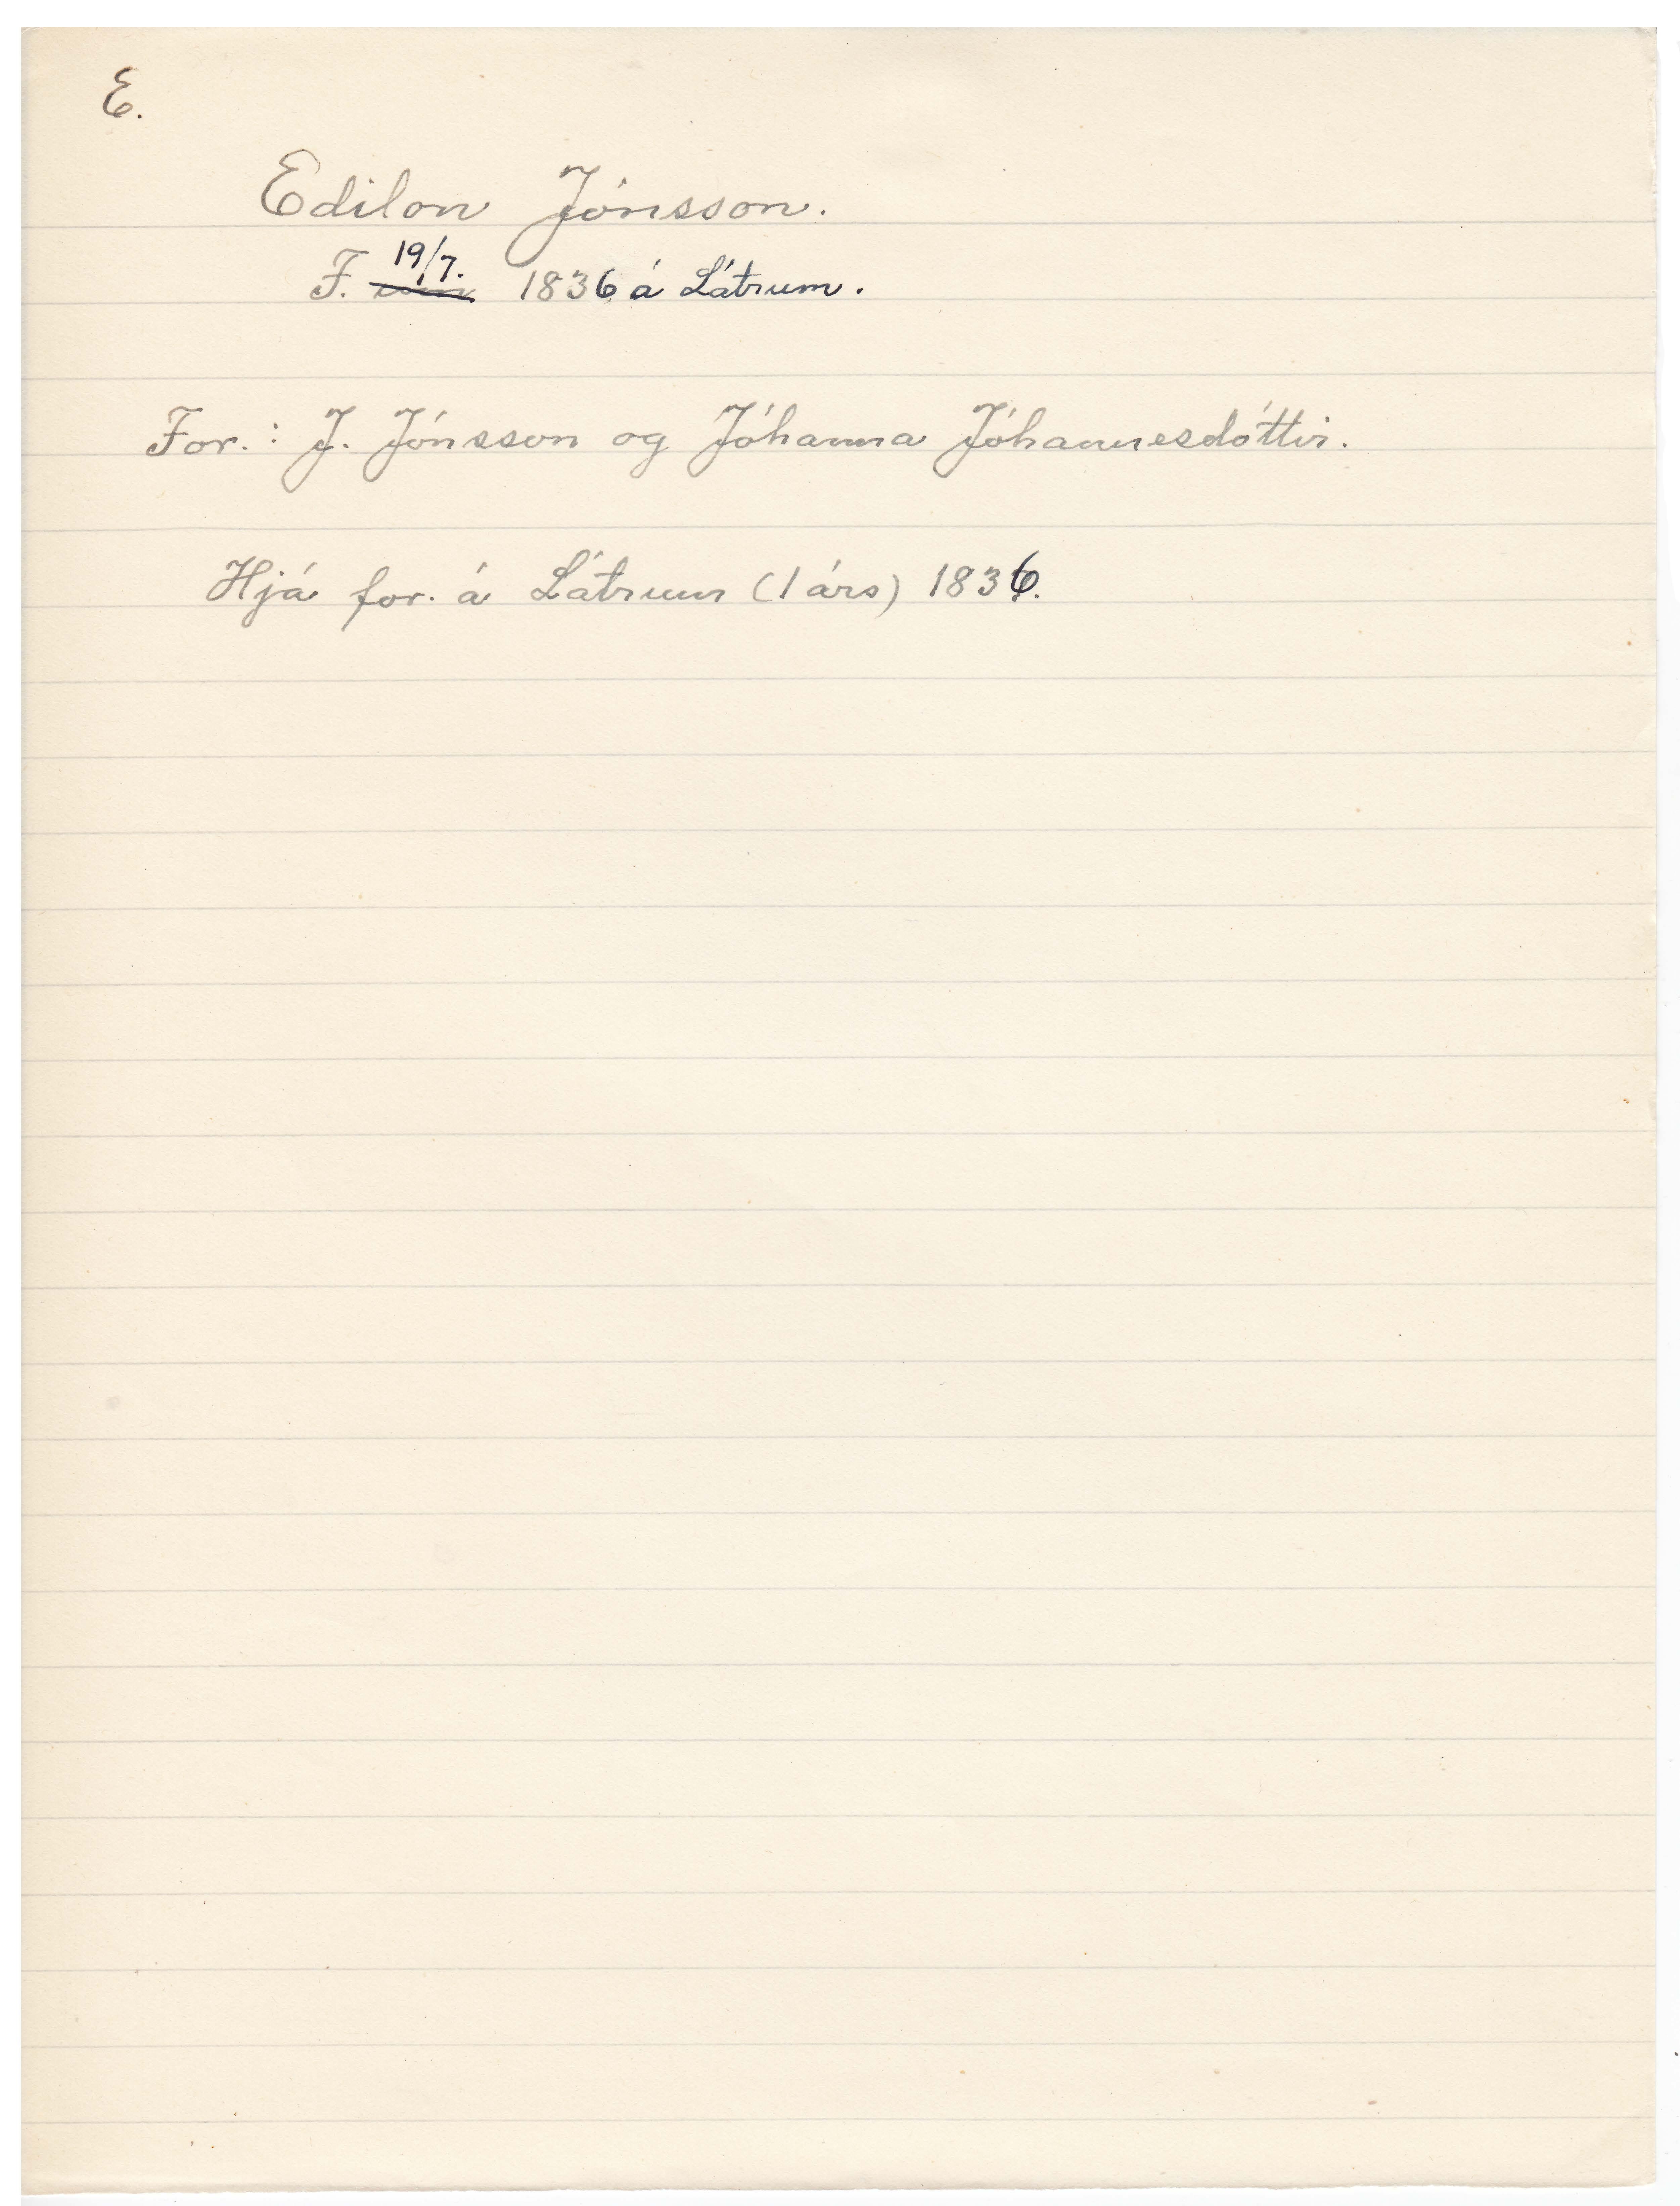 E.
Edilon Jónsson.
F. 19/7. 1836 á Látrum.
For.: J. Jónsson og Jóhanna Jóhannesdóttir.
Hjá for. á Látrum (1 árs) 1836.